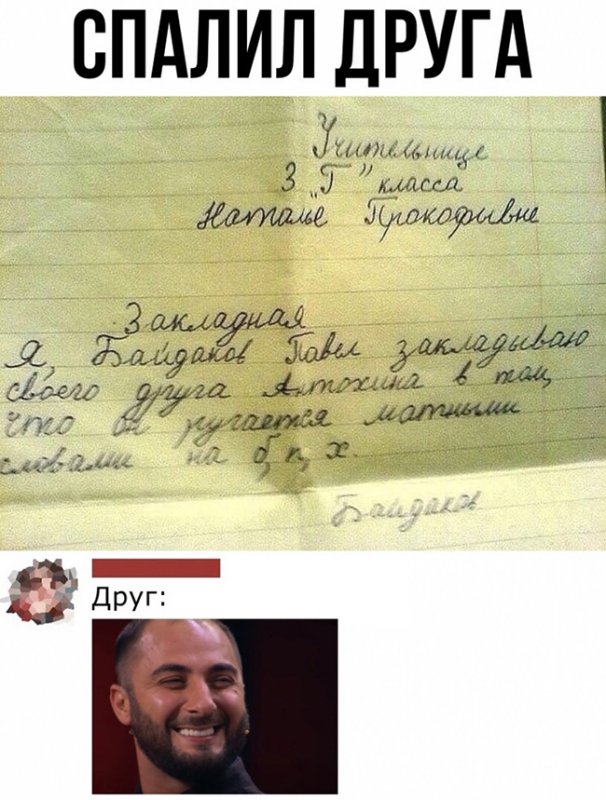 СПАЛИЛ ДРУГА
Учительнице
3 „Г” класса
Наталье Прокофывне
Закладная
Я, Байдаков Павел закладываю
своего друга Антохина в том,
что он ругается матными
словами на б, п, х.
Байдаков
Друг: